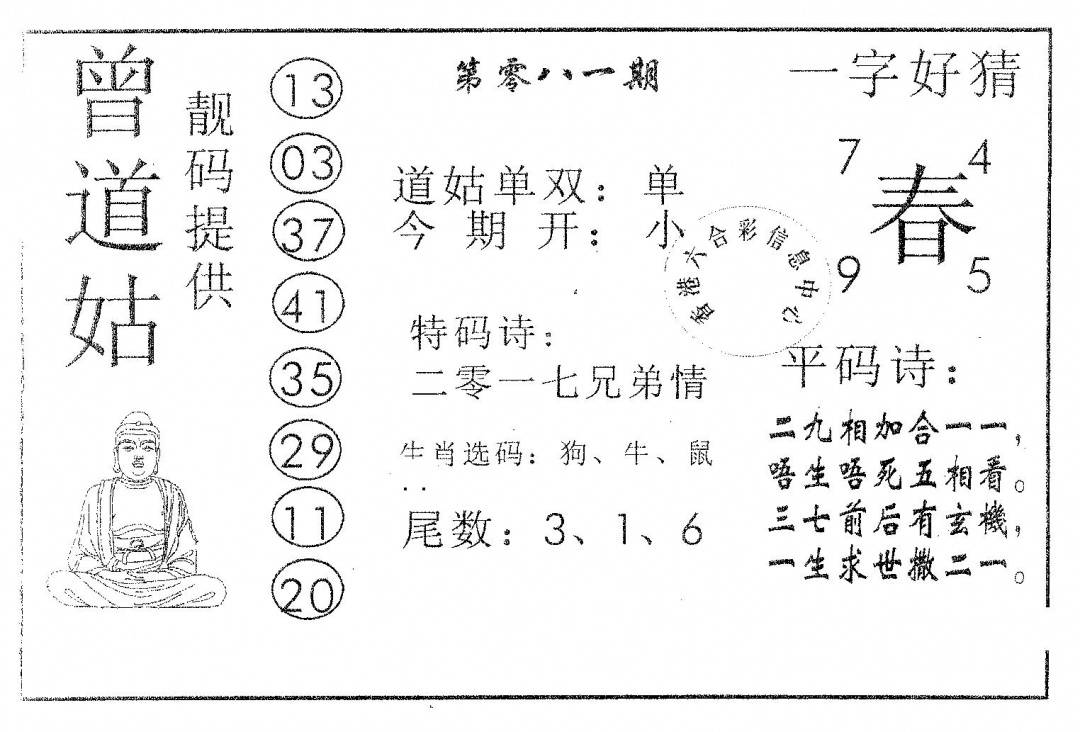 曾道姑
靓码提供
13
03
37
41
35
29
11
20
第零八一期
道姑单双：单
今期开：小
特码诗：
二零一七兄弟情
生肖选码：狗、牛、鼠
..
尾数：3、1、6
香港六合彩信息中心
一字好猜
7 4
春
9 5
平码诗：
二九相加合一一，
唔生唔死五相看。
三七前后有玄機，
一生求世撒二一。